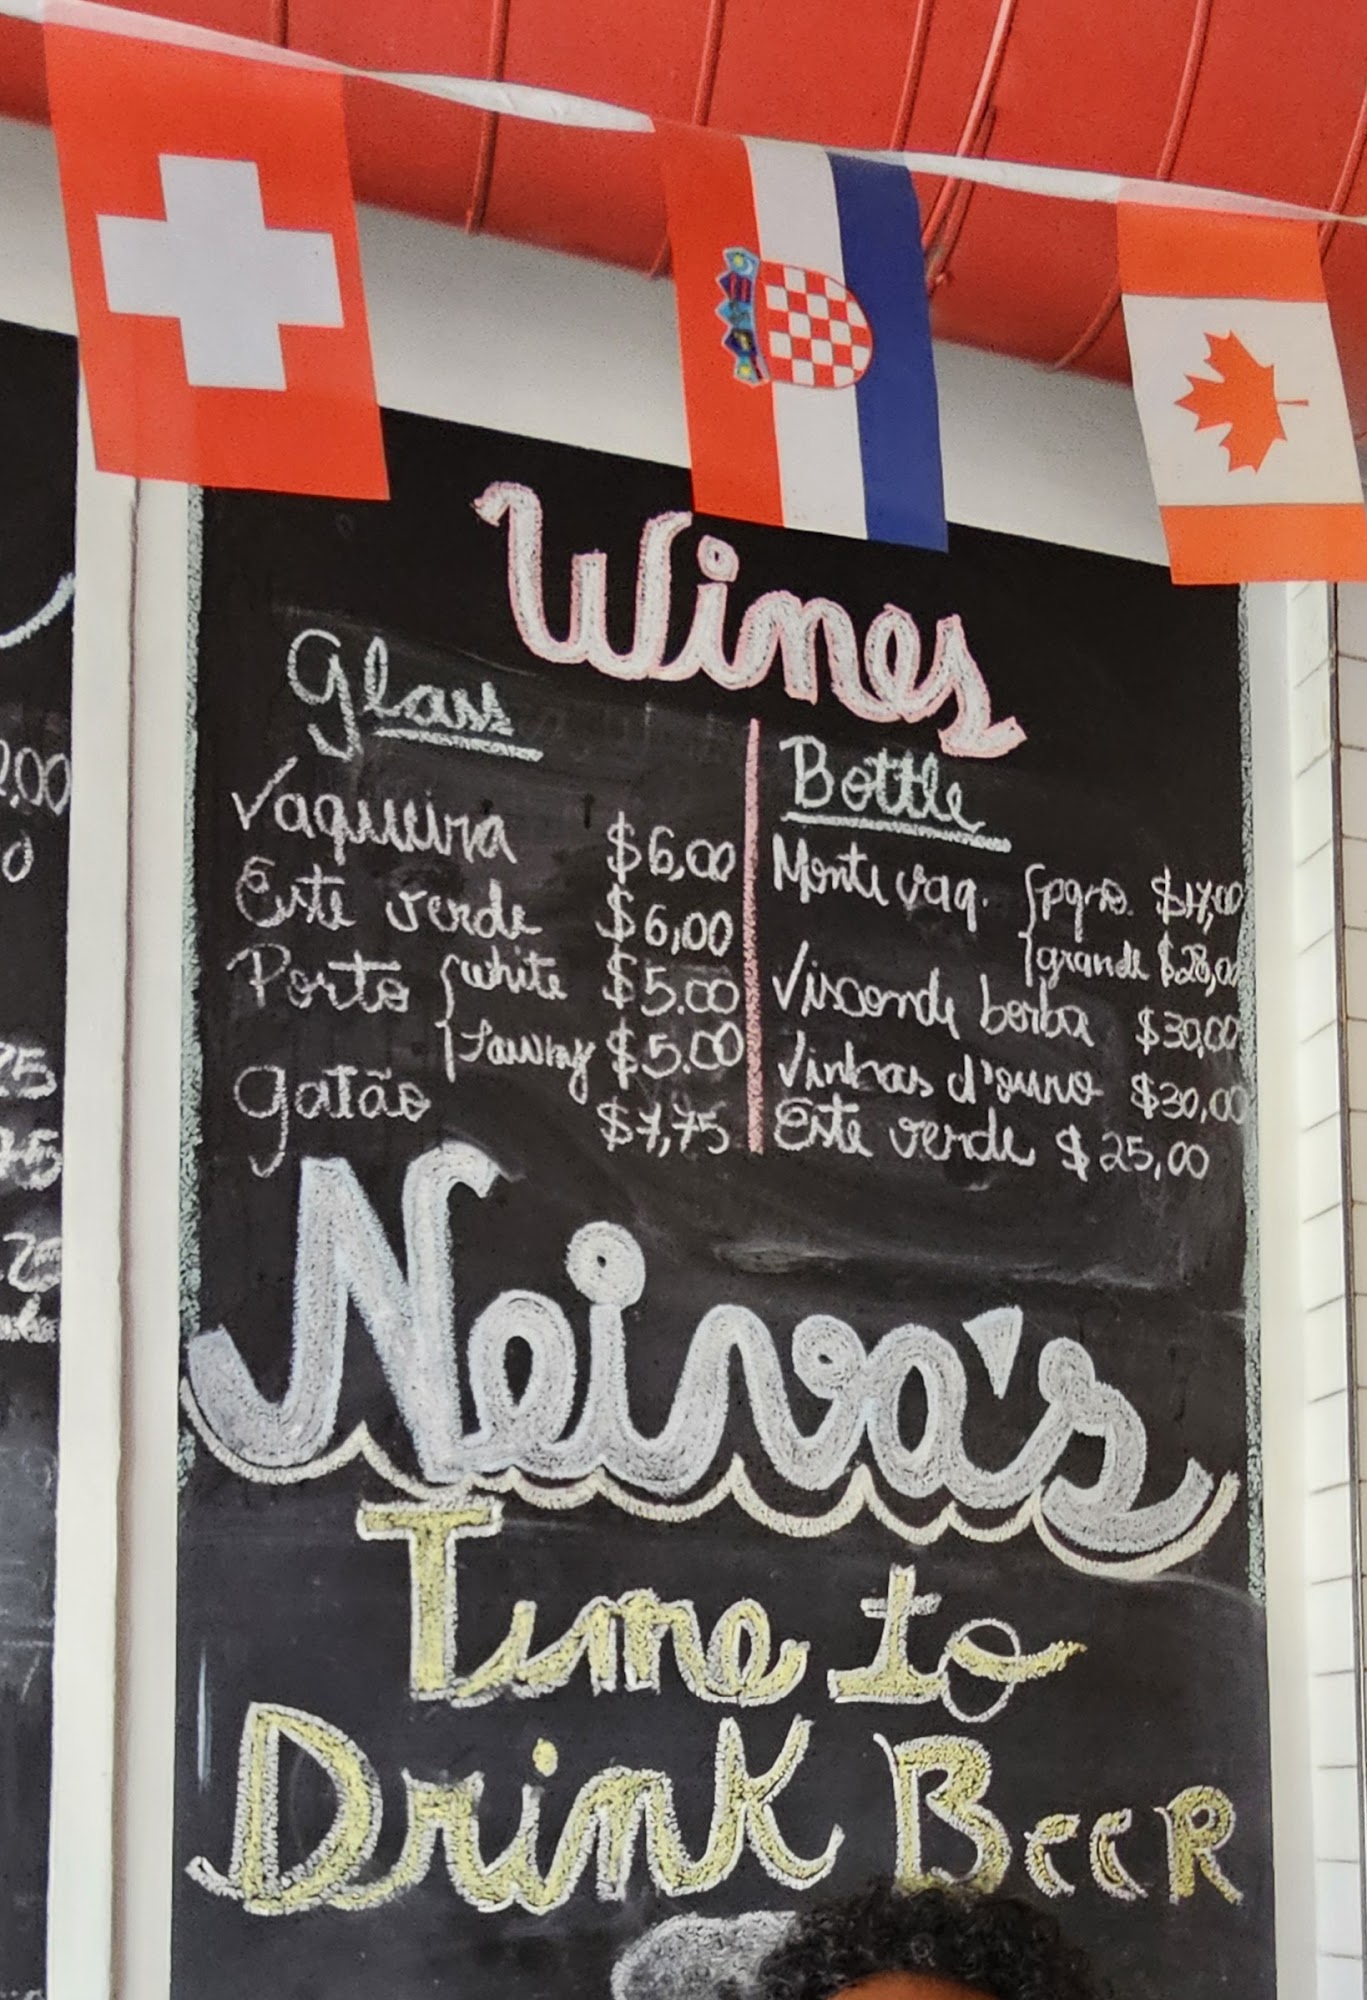 Wines
Glass
Vaqueira $6,00
Este verde $6,00
Porto { white $5.00
{ Tawny $5.00
gatão $7,75
Bottle
Monte vaq. { pqno. $17,00
{ grande $28,00
Visconde borba $30,00
Vinhas d'ouro $30,00
Este verde $25,00
Neiva's
Time to
Drink Beer